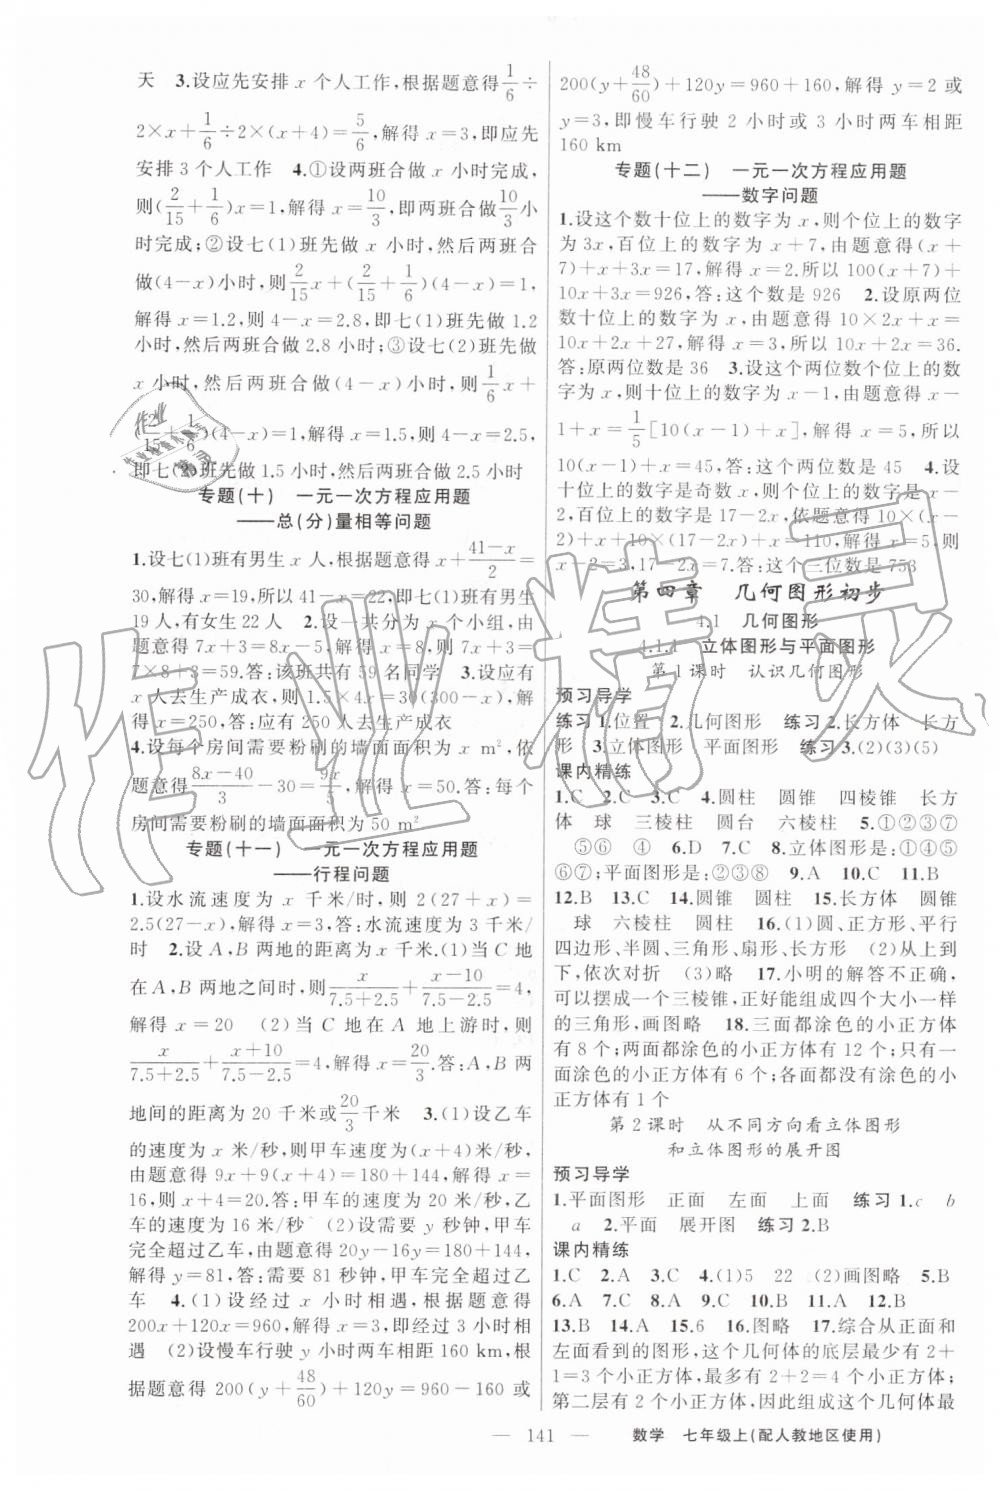 天　3.设应先安排 x 个人工作,根据题意得1/6÷
2×x+1/6÷2×(x+4)=5/6,解得 x=3,即应先
安排 3 个人工作　4.①设两班合做 x 小时完成,
则(2/15+1/6)x=1,解得 x=10/3,即两班合做10/3小
时完成;②设七(1)班先做 x 小时,然后两班合
做(4-x)小时,则2/15x+(2/15+1/6)(4-x)=1,
解得 x=1.2,则 4-x=2.8,即七(1)班先做 1.2
小时,然后两班合做 2.8 小时;③设七(2)班先做
x 小时,然后两班合做(4-x)小时,则1/6x+
(2/15+1/6)(4-x)=1,解得 x=1.5,则 4-x=2.5,
即七(2)班先做 1.5 小时,然后两班合做 2.5 小时
专题(十)　一元一次方程应用题
——总(分)量相等问题
1.设七(1)班有男生 x 人,根据题意得 x+(41-x)/2=
30,解得 x=19,所以 41-x=22,即七(1)班有男生
19 人,有女生 22 人　2.设一共分为 x 个小组,由
题意得 7x+3=8(x-1)+4,解得 x=8,7x+3=
7×8+3=59.答:该班共有 59 名同学　3.设应有
x 人去生产成衣,则1.5×4x=30(300-x),解
得 x=250,答:应有 250 人去生产成衣
4.设每个房间需要粉刷的墙面面积为 x m²,依
题意得(8x-40)/3-30=9x/5,解得 x=50.答:每个
房间需要粉刷的墙面面积为 50 m²
专题(十一)　一元一次方程应用题
——行程问题
1.设水流速度为 x 千米/时,则 2(27+x)=
2.5(27-x),解得 x=3,答:水流速度为 3 千米/
时　2.设 A,B 两地的距离为 x 千米.(1)当 C 地
在 A,B 两地之间时,则x/(7.5+2.5)+(x-10)/(7.5-2.5)=4,
解得 x=20　(2)当 C 地在 A 地上游时,则
x/(7.5+2.5)+(x+10)/(7.5-2.5)=4,解得 x=20/3.答:A,B 两
地间的距离为 20 千米或20/3千米　3.(1)设乙车
的速度为 x 米/秒,则甲车速度为(x+4)米/秒,
由题意得 9x+9(x+4)=180+144,解得 x=
16,则 x+4=20.答:甲车的速度为 20 米/秒,乙
车的速度为 16 米/秒　(2)设需要 y 秒钟,甲车
完全超过乙车,由题意得 20y-16y=180+144,
解得 y=81,答:需要 81 秒钟,甲车完全超过乙
车　4.(1)设经过 x 小时相遇,根据题意得
200x+120x=960,解得 x=3,即经过 3 小时相
遇　(2)设慢车行驶 y 小时两车相距 160 km,根
据题意得 200(y+48/60)+120y=960-160 或
200(y+48/60)+120y=960+160,解得 y=2 或
y=3,即慢车行驶 2 小时或 3 小时两车相距
160 km
专题(十二)　一元一次方程应用题
——数字问题
1.设这个数十位上的数字为 x,则个位上的数字
为 3x,百位上的数字为 x+7,由题意得(x+
7)+x+3x=17,解得 x=2.所以 100(x+7)+
10x+3x=926,答:这个数是 926　2.设原两位
数十位上的数字为 x,由题意得 10×2x+x=
10x+2x+27,解得 x=3.所以 10x+2x=36.
答:原两位数是 36　3.设这个两位数个位上的数
字为 x,则十位上的数字为 x-1,由题意得 x-
1+x=1/5[10(x-1)+x],解得 x=5,所以
10(x-1)+x=45,答:这个两位数是 45　4.设
十位上的数字是奇数 x,则个位上的数字是 x-
2,百位上的数字是 17-2x,依题意得 10×(x-
2)+10x+10(17-2x)+x=110,解得 x=5,则
x-2=3,17-2x=7.答:这个三位数是 753
第四章　几何图形初步
4.1　几何图形
4.1.1　立体图形与平面图形
第 1 课时　认识几何图形
预习导学
练习 1.位置　2.几何图形　练习 2.长方体　长方
形　3.立体图形　平面图形　练习 3.(2)(3)(5)
课内精练
1.C　2.C　3.C　4.圆柱　圆锥　四棱锥　长方
体　球　三棱柱　圆台　六棱柱　5.①②③⑦
⑤⑥　④　6.D　7.C　8.立体图形是:①④⑤
⑥⑦;平面图形是:②③⑧　9.A　10.C　11.B
12.B　13.C　14.圆锥　圆柱　15.长方体　圆锥
球　六棱柱　圆柱　16.(1)圆、正方形、平行
四边形、半圆、三角形、扇形、长方形　(2)从上到
下,依次对折　(3)略　17.小明的解答不正确,
可以摆成一个三棱锥,正好能组成四个大小一样
的三角形,画图略　18.三面都涂色的小正方体
有 8 个;两面都涂色的小正方体有 12 个;只有一
面涂色的小正方体有 6 个;各面都没有涂色的小
正方体有 1 个
第 2 课时　从不同方向看立体图形
和立体图形的展开图
预习导学
1.平面图形　正面　左面　上面　练习 1.c　b
a　2.平面　展开图　练习 2.B
课内精练
1.C　2.A　3.C　4.(1)5　22　(2)画图略　5.B
6.A　7.C　8.A　9.C　10.B　11.A　12.B
13.B　14.A　15.6　16.图略　17.综合从正面和
左面看到的图形,这个几何体的底层最少有 2+
1=3个小正方体,最多有 2+2=4 个小正方体;
第二层有 2 个小正方体,因此组成这个几何体最
— 141 —　数学　七年级上(配人教地区使用)
作业精灵